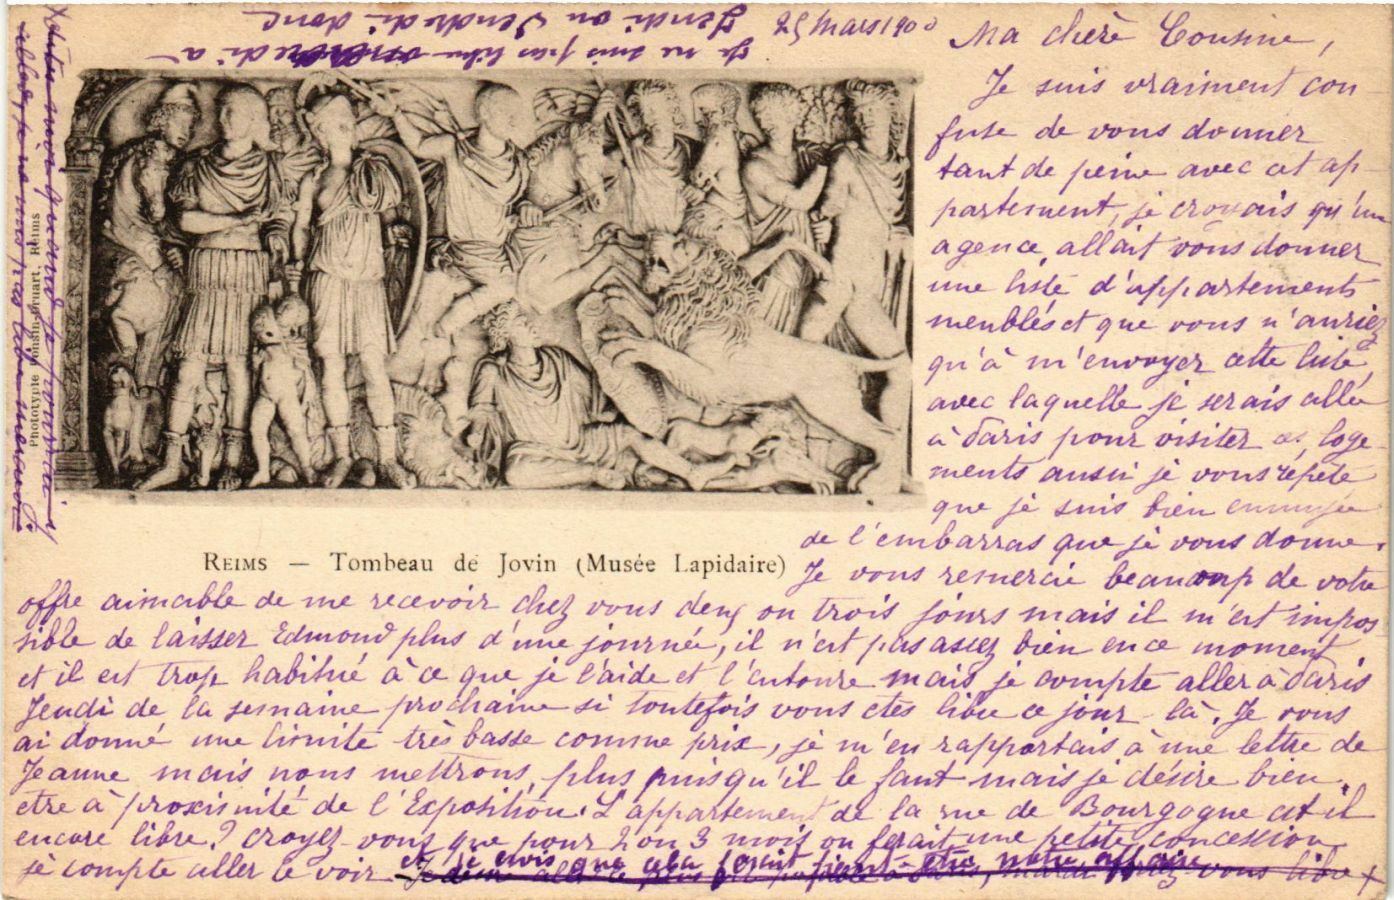 25 Mars 1900
Ma chère Cousine,
Je suis vraiment con-
fuse de vous donner
tant de peine avec cet ap-
partement, je croyais qu'une
agence allait vous donner
une liste d'appartements
meublés et que vous n'auriez
qu'à m'envoyer cette liste
avec laquelle je serais allée
à Paris pour visiter ces loge
ments aussi je vous répète
que je suis bien ennuyée
de l'embarras que je vous donne.
Je vous remercie beaucoup de votre
offre aimable de me recevoir chez vous deux ou trois jours mais il m'est impos
sible de laisser Edmond plus d'une journée, il n'est pas assez bien en ce moment
et il est trop habitué à ce que je l'aide et l'entoure mais je compte aller à Paris
Jeudi de la semaine prochaine si toutefois vous êtes libre ce jour-là. Je vous
ai donné une limite très basse comme prix, je m'en rapportais à une lettre de
Jeanne mais nous mettrons plus puisqu'il le faut mais je désire bien
etre à proximité de l'Exposition. L'appartement de la rue de Bourgogne est il
encore libre? croyez-vous que pour 2 ou 3 mois on ferait une petite concession
et je crois que cela ferait peut-être notre affaire
je compte aller le voir vous libre x
x
quand je pourrais
je ne suis pas libre
Je ne suis pas libre
Jeudi ou Vendredi donc
REIMS — Tombeau de Jovin (Musée Lapidaire)
Reims